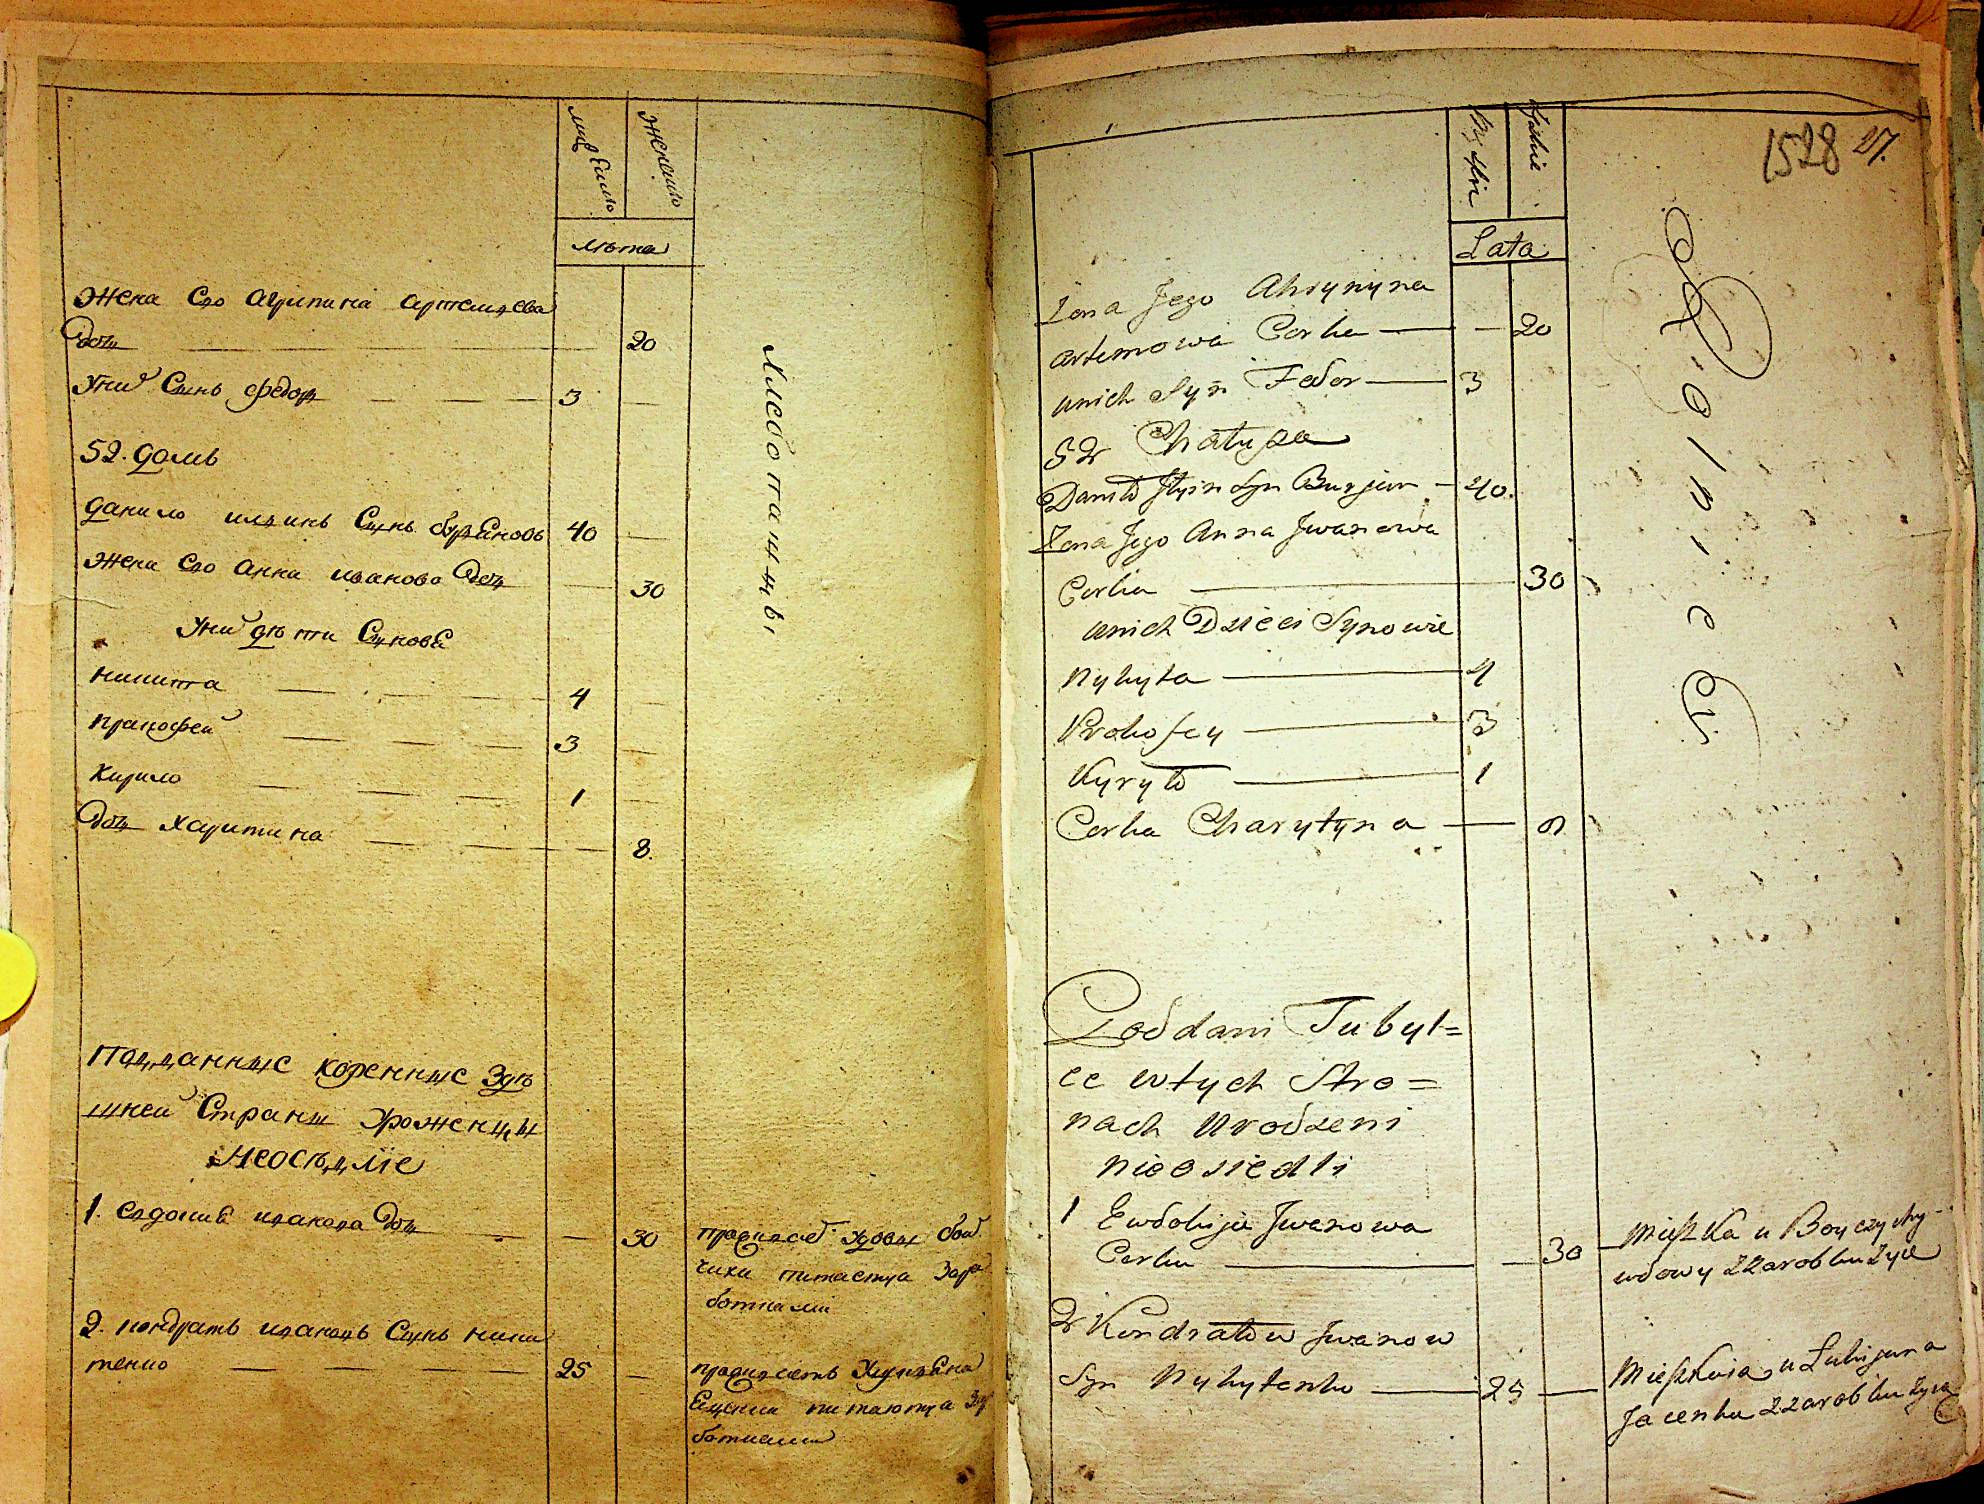 женско
лѣта
Жена его Агрипина Артемьева
дочь — 20
У них сынъ Федоръ — 3 —
52. домъ
Данило Ильинъ сынъ Буряновъ 40 —
Жена его Анна Иванова дочь — 30
У них дѣти сынове
Никита — 4 —
Прокофей — 3 —
Кирило — 1 —
дочь Харитина — 8.
Хлебопашцы
Подданные коренные здѣ
шней стороны уроженцы
неосѣдліе
1. Евдокия Иванова дочь — 30
проживает у вдовы
питается зара
ботками
2. Кондратъ Ивановъ сынъ Ники
тенко — 25 —
проживаетъ у
питаются за
ботками
1528 27.
Lata
Zona Jego Ahrypyna
Artemowa Corka — — 20
unich Syn Fedor — 3
52 Chałupa
Daniło Ilyin Syn Burjan — 40.
Zona Jego Anna Iwanowa
Corka — 30
unich Dzieci Synowie
Nykyta — 4
Prokofey — 3
Kyryło — 1
Corka Charytyna — 8
Rolnicy
Poddani Tubyl=
ce wtych Stro=
nach Urodzeni
nieosiedli
1 Ewdokija Iwanowa
Corka — — 30
Mieszka u Boyczychy
wdowy z zarobku żyie
2 Kondratów Iwanow
Syn Nykytenko — 25 —
Mieszka u Łukijana
Jacenka z zarobku żyie